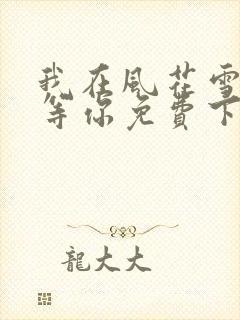 我在風花雪
等你免費下
龍大大